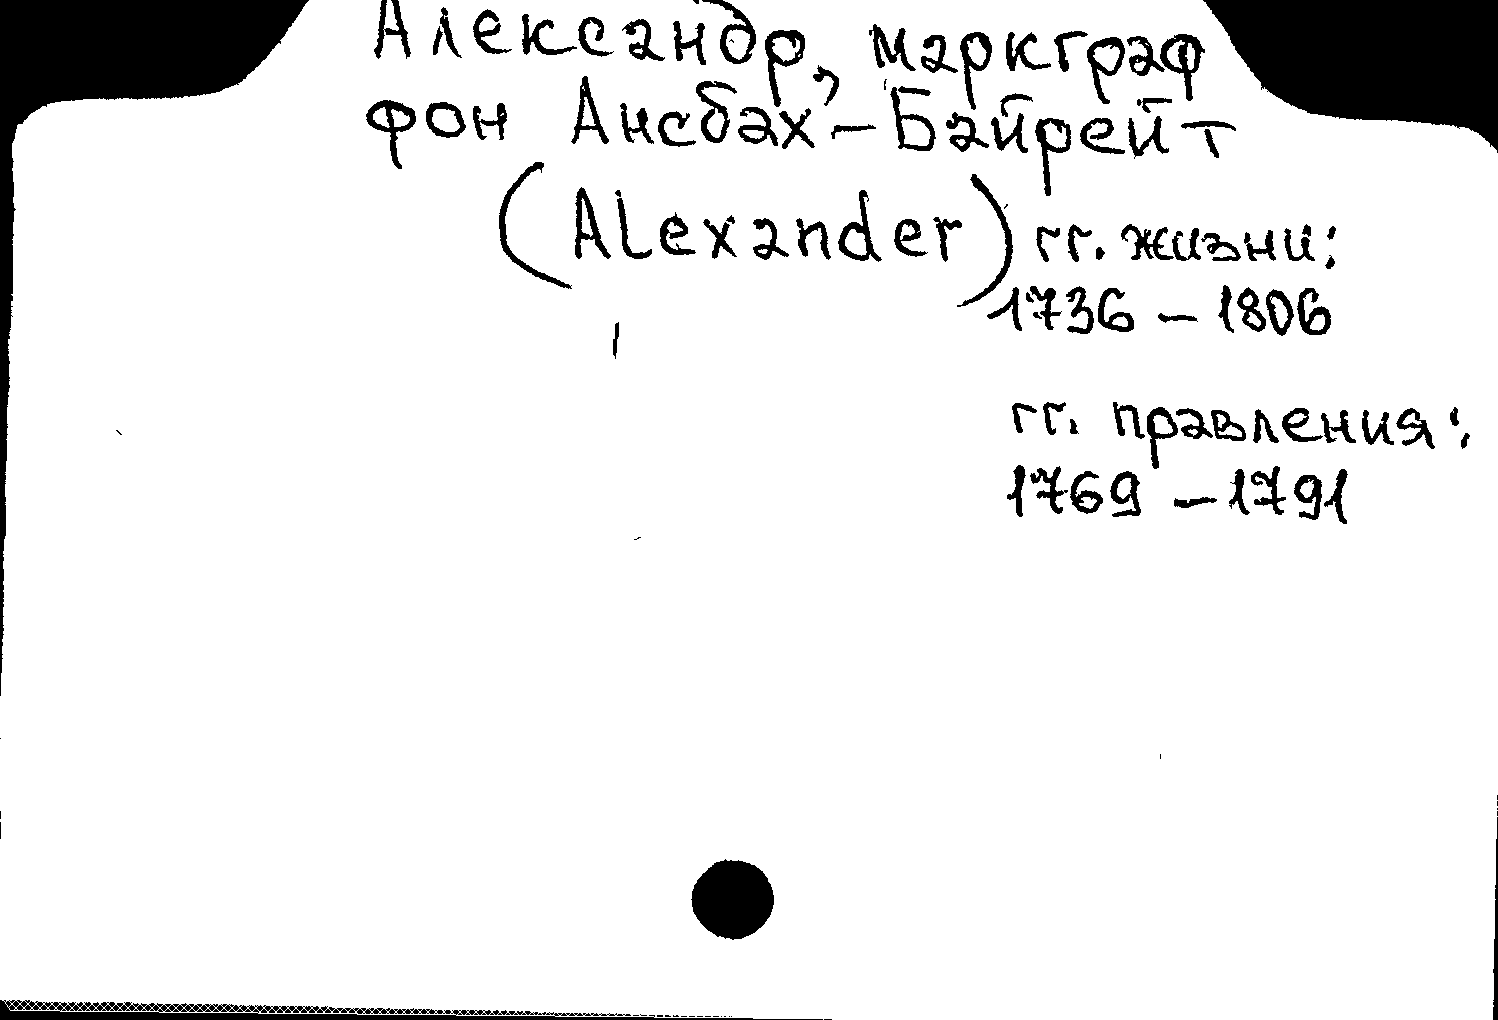 Александр, маркграф
фон Ансбах-Байрейт
(Alexander) гг. жизни:
1736 – 1806
гг. правления:
1769 – 1791